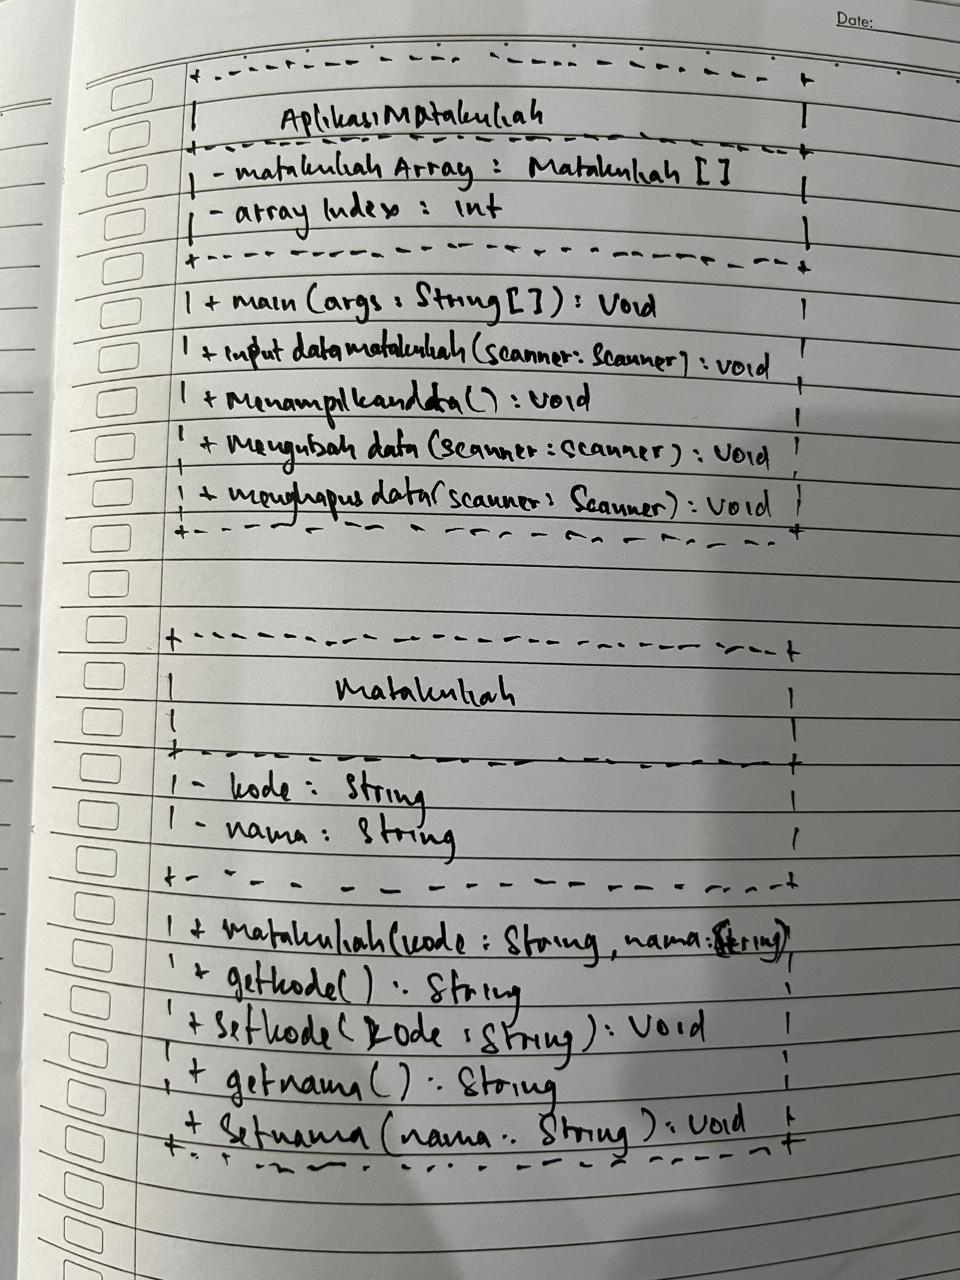 Date:
AplikasiMatakuliah
- matakuliah Array : Matakuliah []
- array Index : int
+ main (args : String []) : Void
+ input datamatakuliah (scanner : Scanner) : void
+ Menampilkandata() : void
+ Mengubah data (scanner : scanner) : void
+ menghapus data (scanner : Scanner) : void
Matakuliah
- kode : String
- nama : String
+ matakuliah (kode : String, nama : String)
+ getkode() : String
+ setkode (kode : String) : Void
+ getnama () : String
+ setnama (nama : String) : void